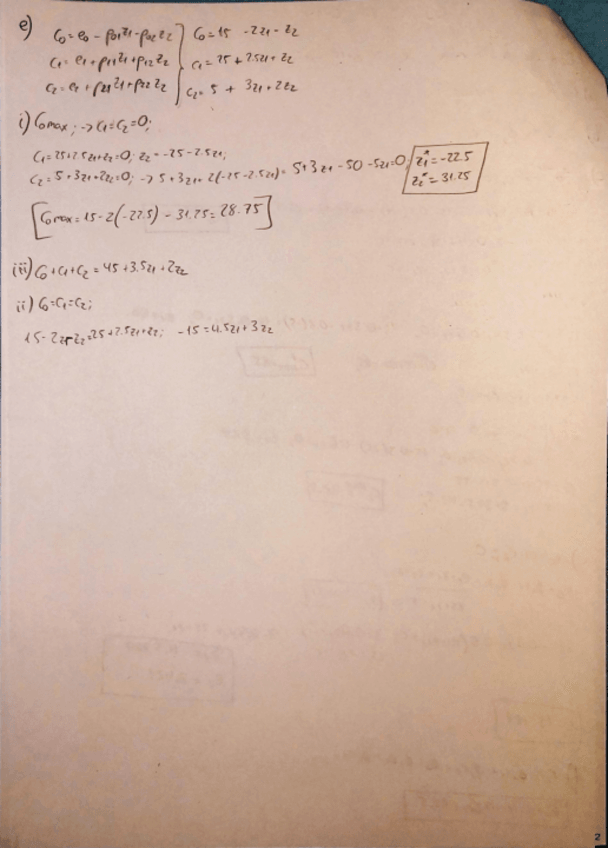 e) C₀ = e₀ - p₀₁z₁ - p₀₂z₂ } C₀ = 15 - 2z₁ - z₂
C₁ = e₁ + p₁₁z₁ + p₁₂z₂ } C₁ = 25 + 2.5z₁ + z₂
C₂ = e₂ + p₂₁z₁ + p₂₂z₂ } C₂ = 5 + 3z₁ + 2z₂
i) C₀max; -> C₁=C₂=0;
C₁=25+2.5z₁+z₂=0; z₂=-25-2.5z₁;
C₂=5+3z₁+2z₂=0; -> 5+3z₁+2(-25-2.5z₁)= 5+3z₁-50-5z₁=0 z₁*=-22.5
z₂*=31.25
C₀max=15-2(-22.5)-31.25=28.75
iii) C₀+C₁+C₂=45+3.5z₁+2z₂
ii) C₀=C₁=C₂;
15-2z₁-z₂=25+2.5z₁+z₂; -15=4.5z₁+3z₂
2